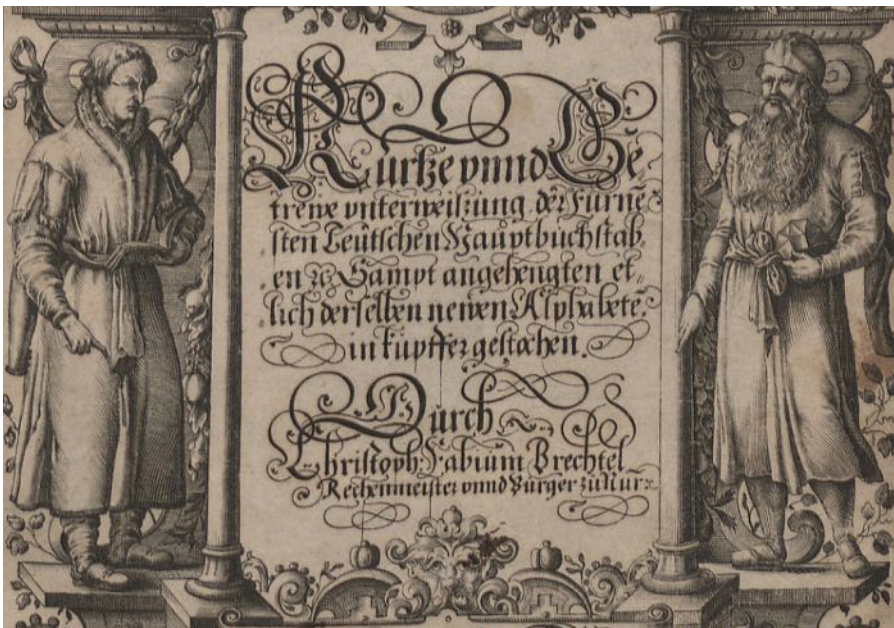 Kurtze vnnd Ge
trewe vnterweisung der Fürnē
sten Teütschen Hauptbuchstab
en ꝛc Sampt angehengten et,
lich derselben newen Alphabete
in kupffer gestochen.
Durch
Christoph Fabium Brechtel
Rechenmeister vnnd Bürger zu Nür